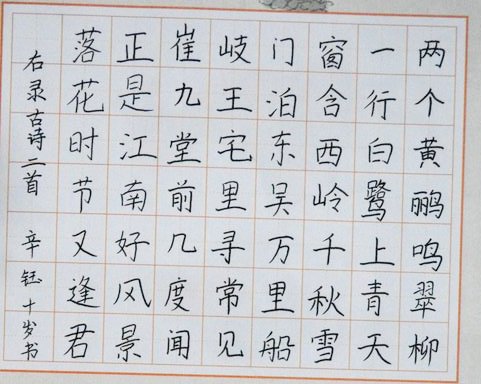 两个黄鹂鸣翠柳
一行白鹭上青天
窗含西岭千秋雪
门泊东吴万里船
岐王宅里寻常见
崔九堂前几度闻
正是江南好风景
落花时节又逢君
右录古诗二首 辛钰十岁书